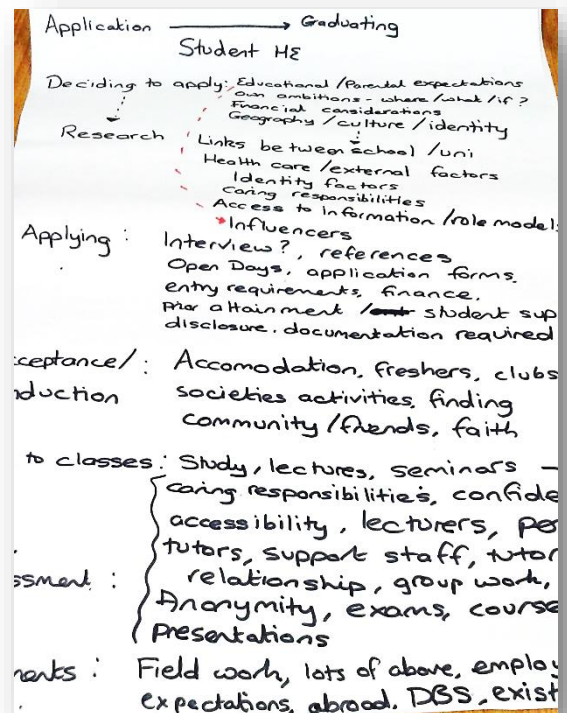 Application → Graduating
Student HE
Deciding to apply: Educational / Parental expectations
own ambitions - where / what / if ?
Financial considerations
Geography / culture / identity
Research
Links between school / uni
Health care / external factors
Identity factors
Caring responsibilities
Access to information / role model
Influencers
Applying : Interview?, references
Open Days, application forms,
entry requirements, finance,
Prior attainment / student sup
disclosure. documentation required
cceptance/ : Accomodation, freshers, clubs
duction societies activities, finding
community / friends, faith
to classes : Study, lectures, seminars -
caring responsibilities, confide
accessibility, lecturers, pe
tutors, support staff, tutor
ssment : relationship, group work,
Anonymity, exams, course
Presentations
ments : Field work, lots of above, employ
expectations, abroad, DBS, exist